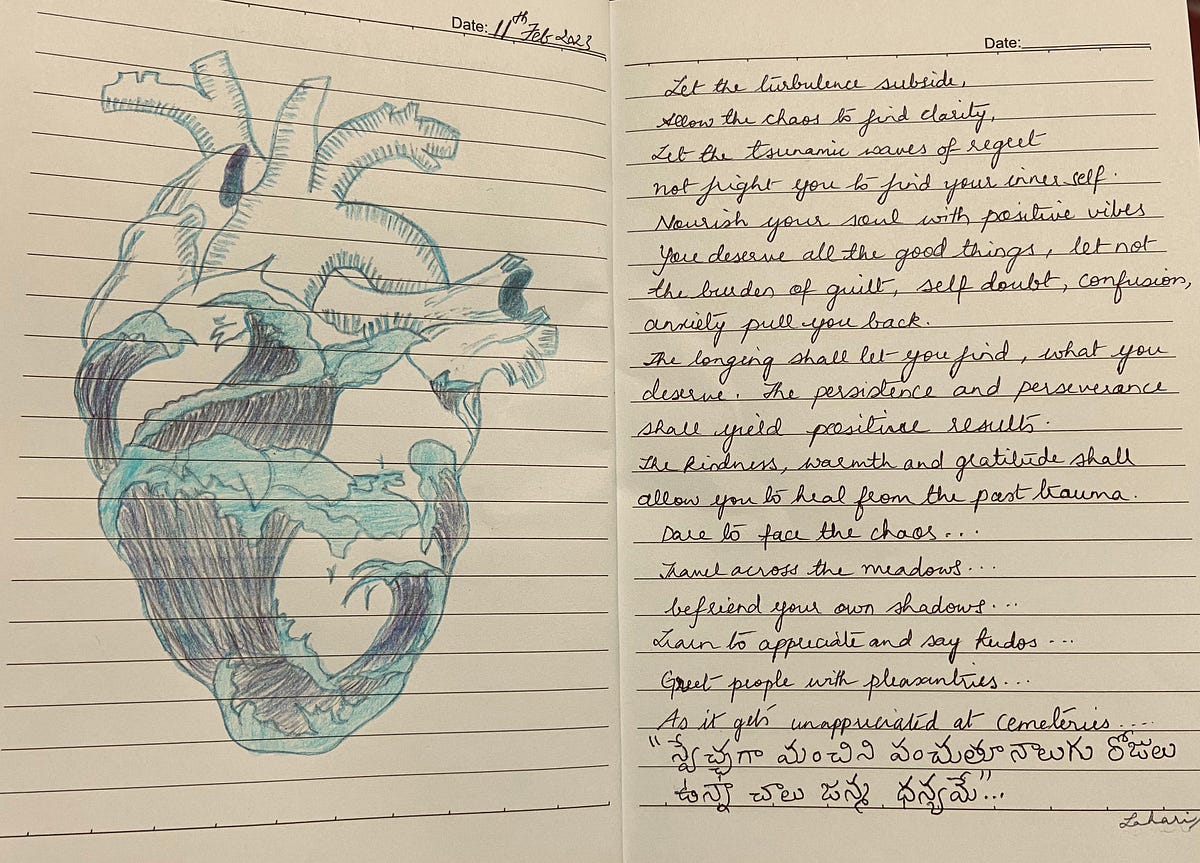 Date: 11th Feb 2023
Date:
Let the turbulence subside,
Allow the chaos to find clarity,
Let the tsunamic waves of regret
not fright you to find your inner self.
Nourish your soul with positive vibes
You deserve all the good things, let not
the burden of guilt, self doubt, confusion,
anxiety pull you back.
The longing shall let you find, what you
deserve. The persistence and perseverance
shall yield positive results.
The kindness, warmth and gratitude shall
allow you to heal from the past trauma.
Dare to face the chaos...
Travel across the meadows...
befriend your own shadows...
Learn to appreciate and say kudos...
Greet people with pleasantries...
As it gets unappreciated at cemeteries....
"స్వేచ్ఛగా మంచిని పంచుతూ నాలుగు రోజులు
ఉన్నా చాలు జన్మ ధన్యమే"...
Lahari